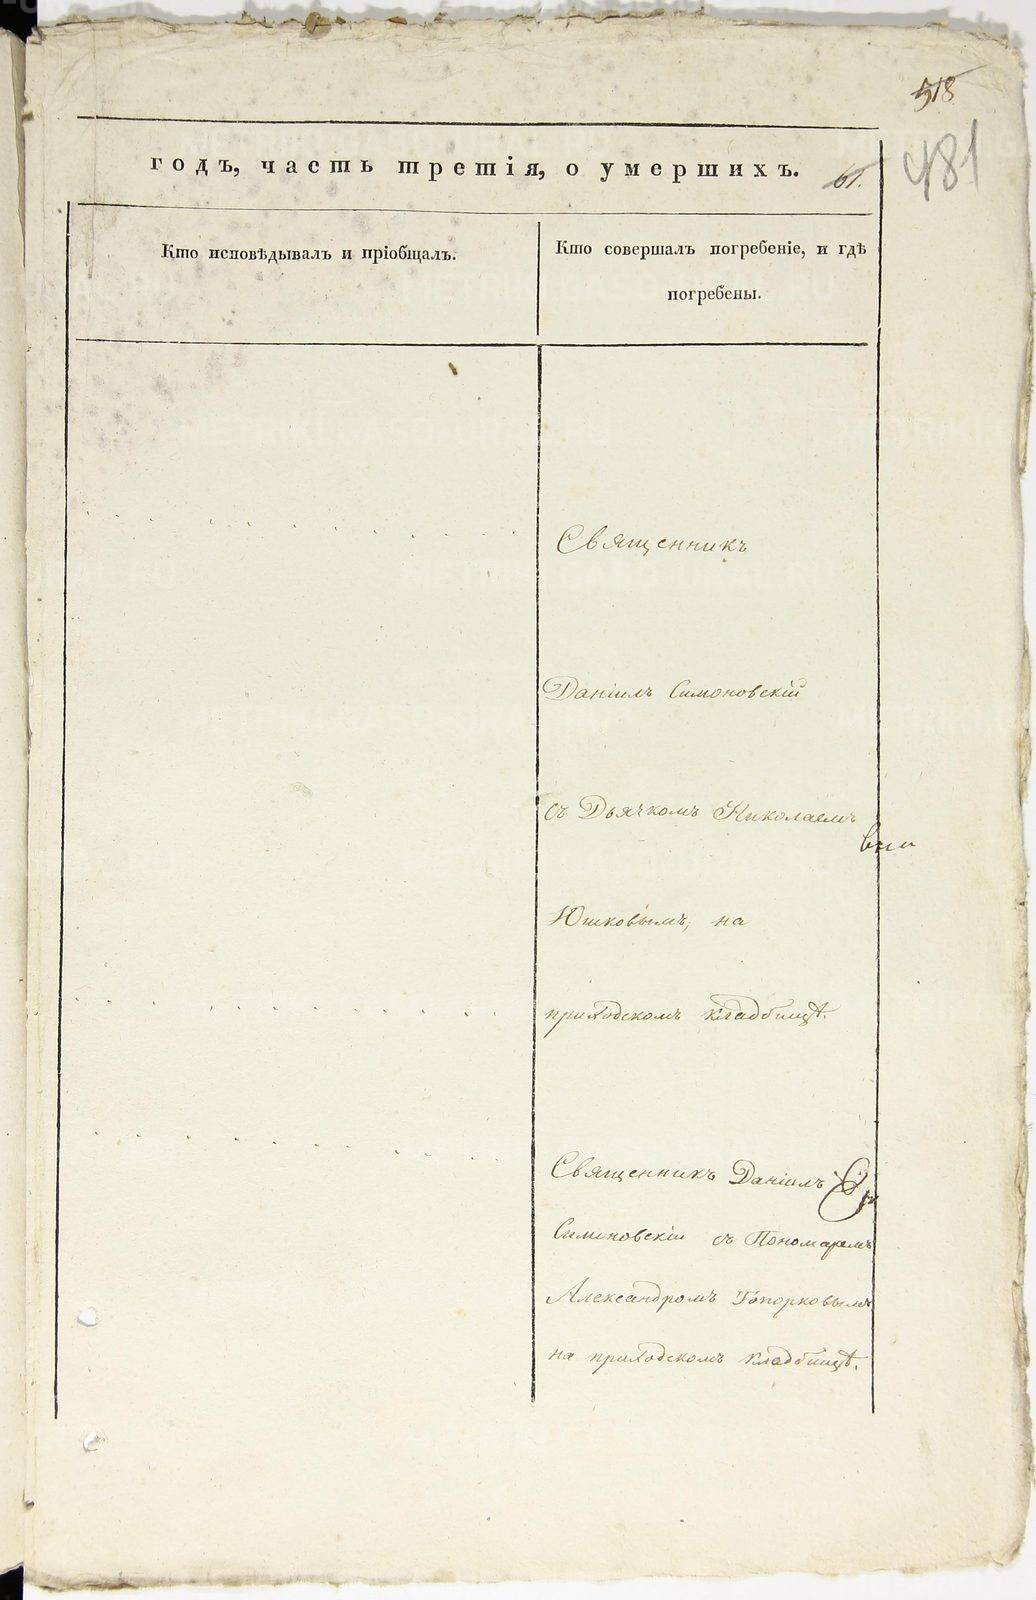 518
481
годъ, часть третія, о умершихъ. 61.
Кто исповѣдывалъ и пріобщалъ.
Кто совершалъ погребеніе, и гдѣ
погребены.
Священникъ
Даніилъ Симоновскій
съ Дьячкомъ Николаемъ
Юшковымъ, на
приходскомъ кладбищѣ.
Священникъ Даніилъ
Симоновскій съ Пономаремъ
Александромъ Топорковымъ
на приходскомъ кладбищѣ.
METRIKI.GASO-URAL.RU